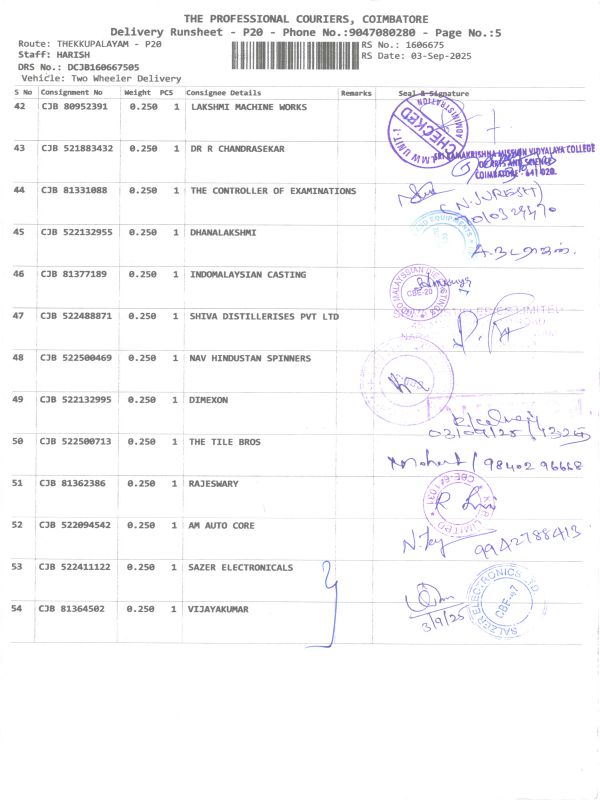 THE PROFESSIONAL COURIERS, COIMBATORE
Delivery Runsheet - P20 - Phone No.:9047080280 - Page No.:5
Route: THEKKUPALAYAM - P20 RS No.: 1606675
Staff: HARISH RS Date: 03-Sep-2025
DRS No.: DCJB160667505
Vehicle: Two Wheeler Delivery
S No Consignment No Weight PCS Consignee Details Remarks Seal & Signature
42 CJB 80952391 0.250 1 LAKSHMI MACHINE WORKS
ADMINISTRATION
CHECKED
LMW UNIT-1
43 CJB 521883432 0.250 1 DR R CHANDRASEKAR
SRI RAMAKRISHNA MISSION VIDYALAYA COLLEGE
OF ARTS AND SCIENCE
COIMBATORE - 641 020.
44 CJB 81331088 0.250 1 THE CONTROLLER OF EXAMINATIONS
(N.SURESH)
45 CJB 522132955 0.250 1 DHANALAKSHMI
46 CJB 81377189 0.250 1 INDOMALAYSIAN CASTING
CBE-20
47 CJB 522488871 0.250 1 SHIVA DISTILLERISES PVT LTD
LIMITED
48 CJB 522500469 0.250 1 NAV HINDUSTAN SPINNERS
49 CJB 522132995 0.250 1 DIMEXON
03/09/25
50 CJB 522500713 0.250 1 THE TILE BROS
98402 96668
51 CJB 81362386 0.250 1 RAJESWARY
LIMITED
52 CJB 522094542 0.250 1 AM AUTO CORE
9942788413
53 CJB 522411122 0.250 1 SAZER ELECTRONICALS
SALZER ELECTRONICS LTD.
CBE-47
54 CJB 81364502 0.250 1 VIJAYAKUMAR
3/9/25